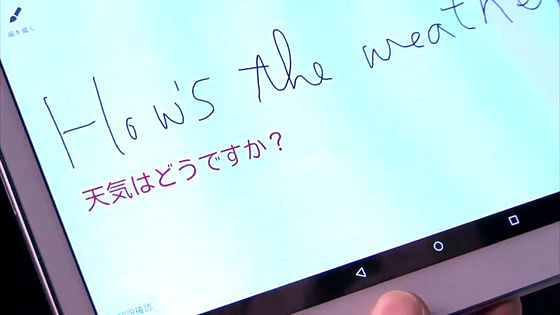 絵を描く
How's the weathe
天気はどうですか？
認識確認